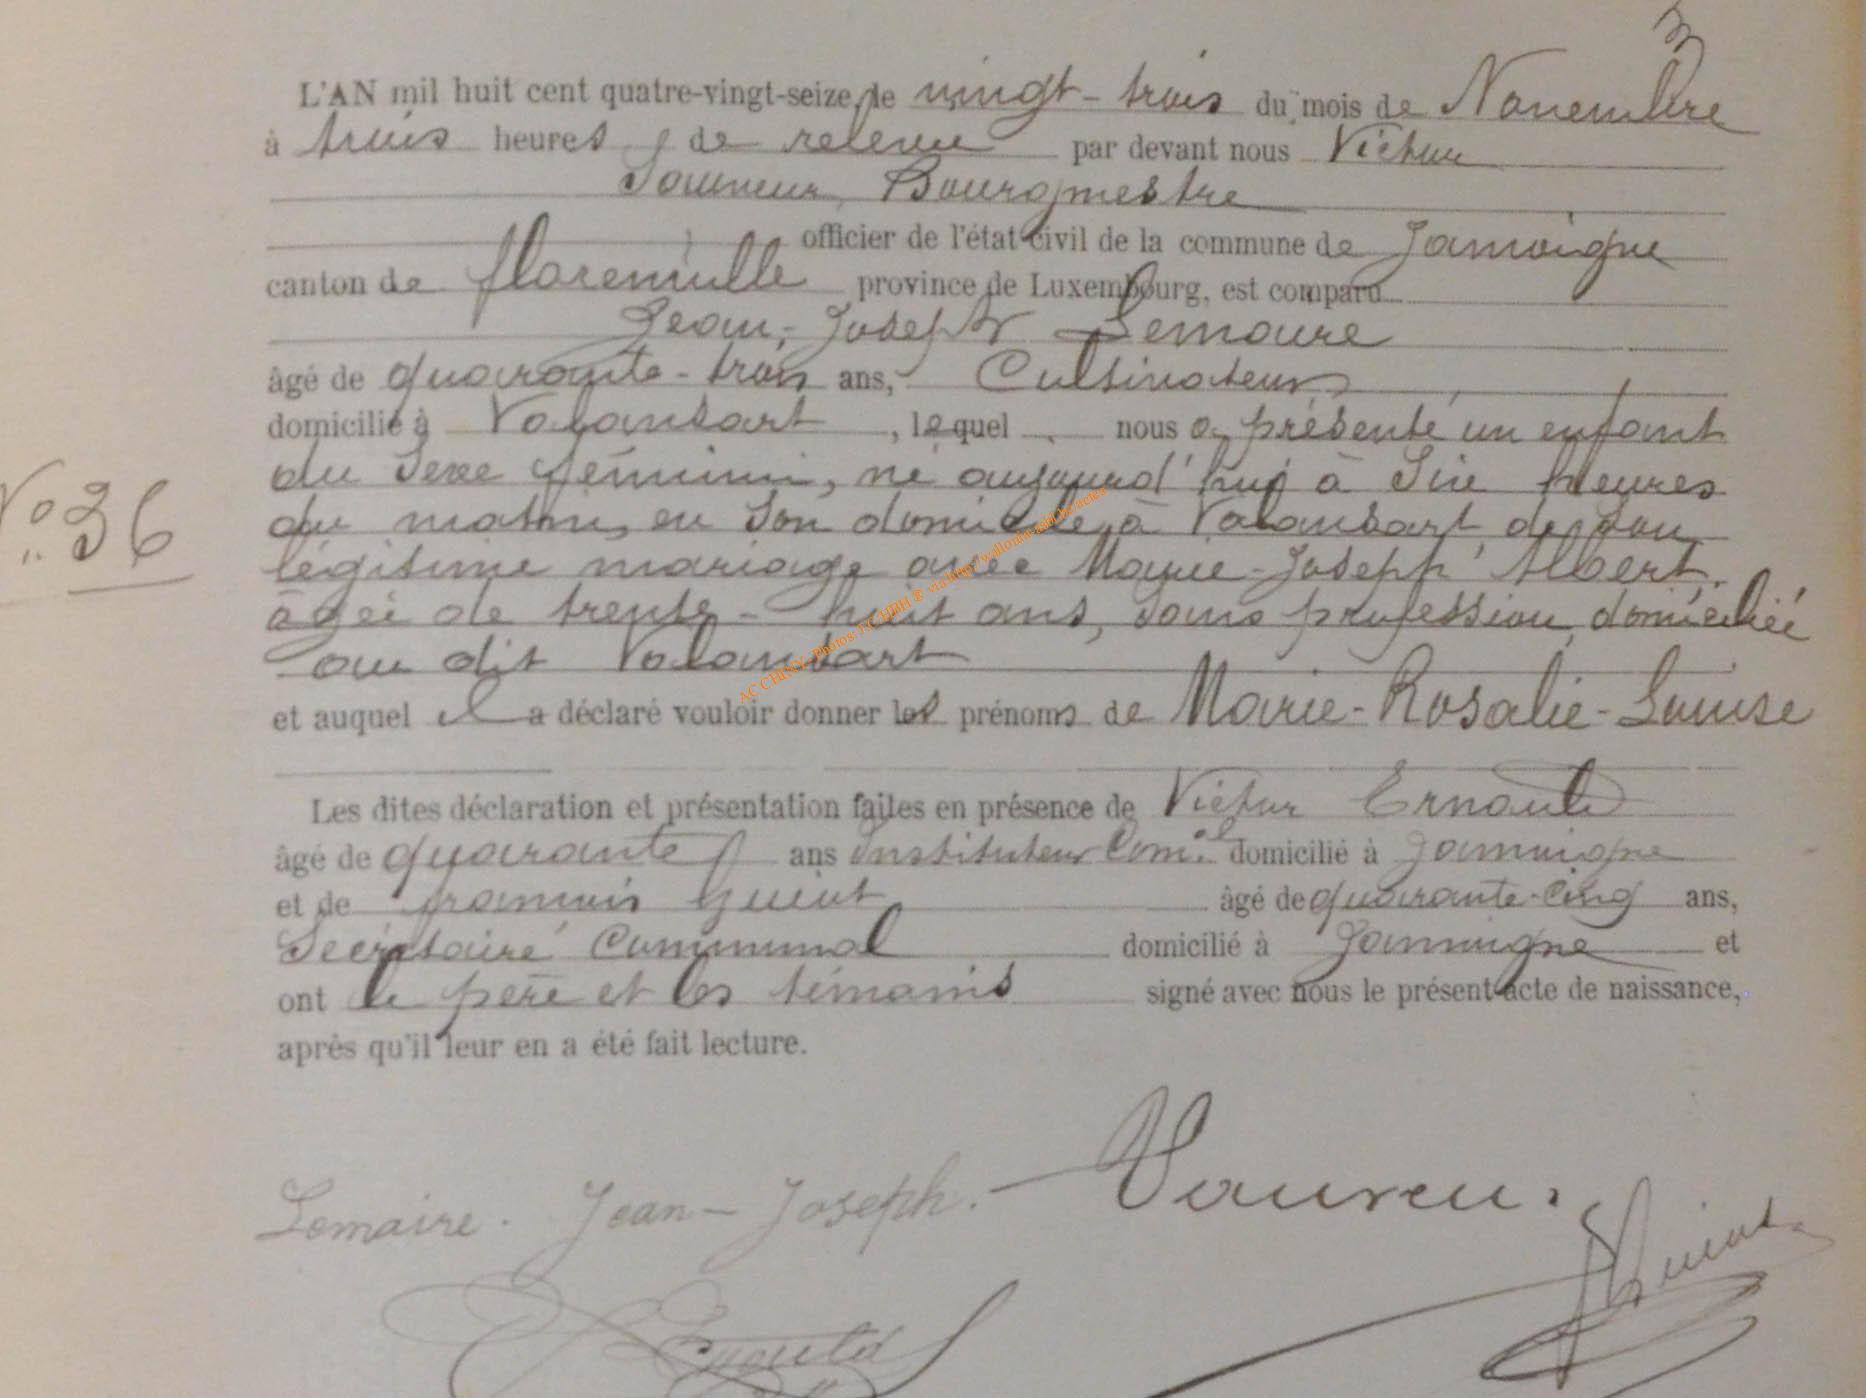 L'AN mil huit cent quatre-vingt-seize, le vingt-trois du mois de Novembre
à trois heures de relevée par devant nous Victor
Bourgmestre
officier de l'état civil de la commune de Jamoigne
canton de florenville province de Luxembourg, est comparu
Jean-Joseph Lemaire
âgé de quarante-trois ans, Cultivateur,
domicilié à Valansart, lequel nous a présenté un enfant
N° 36
du sexe féminin, né aujourd'hui à six heures
du matin, en son domicile à Valansart, de son
légitime mariage avec Marie-Joseph Albert,
âgée de trente-huit ans, sans profession, domiciliée
au dit Valansart
et auquel il a déclaré vouloir donner les prénoms de Marie-Rosalie-Louise
Les dites déclaration et présentation faites en présence de Victor
âgé de quarante ans Instituteur Com.al domicilié à Jamoigne
et de françois âgé de quarante-cinq ans,
Secrétaire Communal domicilié à Jamoigne et
ont le père et les témoins signé avec nous le présent acte de naissance,
après qu'il leur en a été fait lecture.
Lemaire. Jean-Joseph.
AC CHINY - Photos